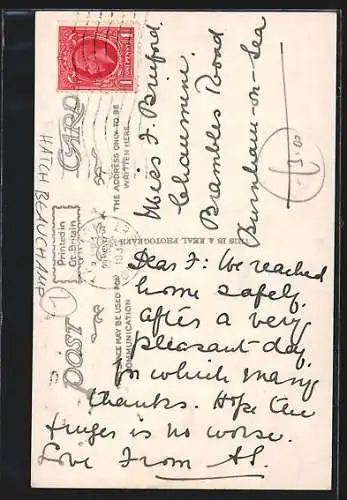 POST CARD
THE ADDRESS ONLY TO BE
WRITTEN HERE
MAY BE USED FOR
COMMUNICATION
Printed in
Gt. Britain
THIS IS A REAL PHOTOGRAPH
1 ONE PENNY 1
HATCH BEAUCHAMP
Miss F. Binford.
Chaumine.
Brambles Road
Burnham-on-Sea
3.00
Dear F: We reached
home safely,
after a very
pleasant day,
for which many
thanks. Hope the
finger is no worse.
Love From A.S.